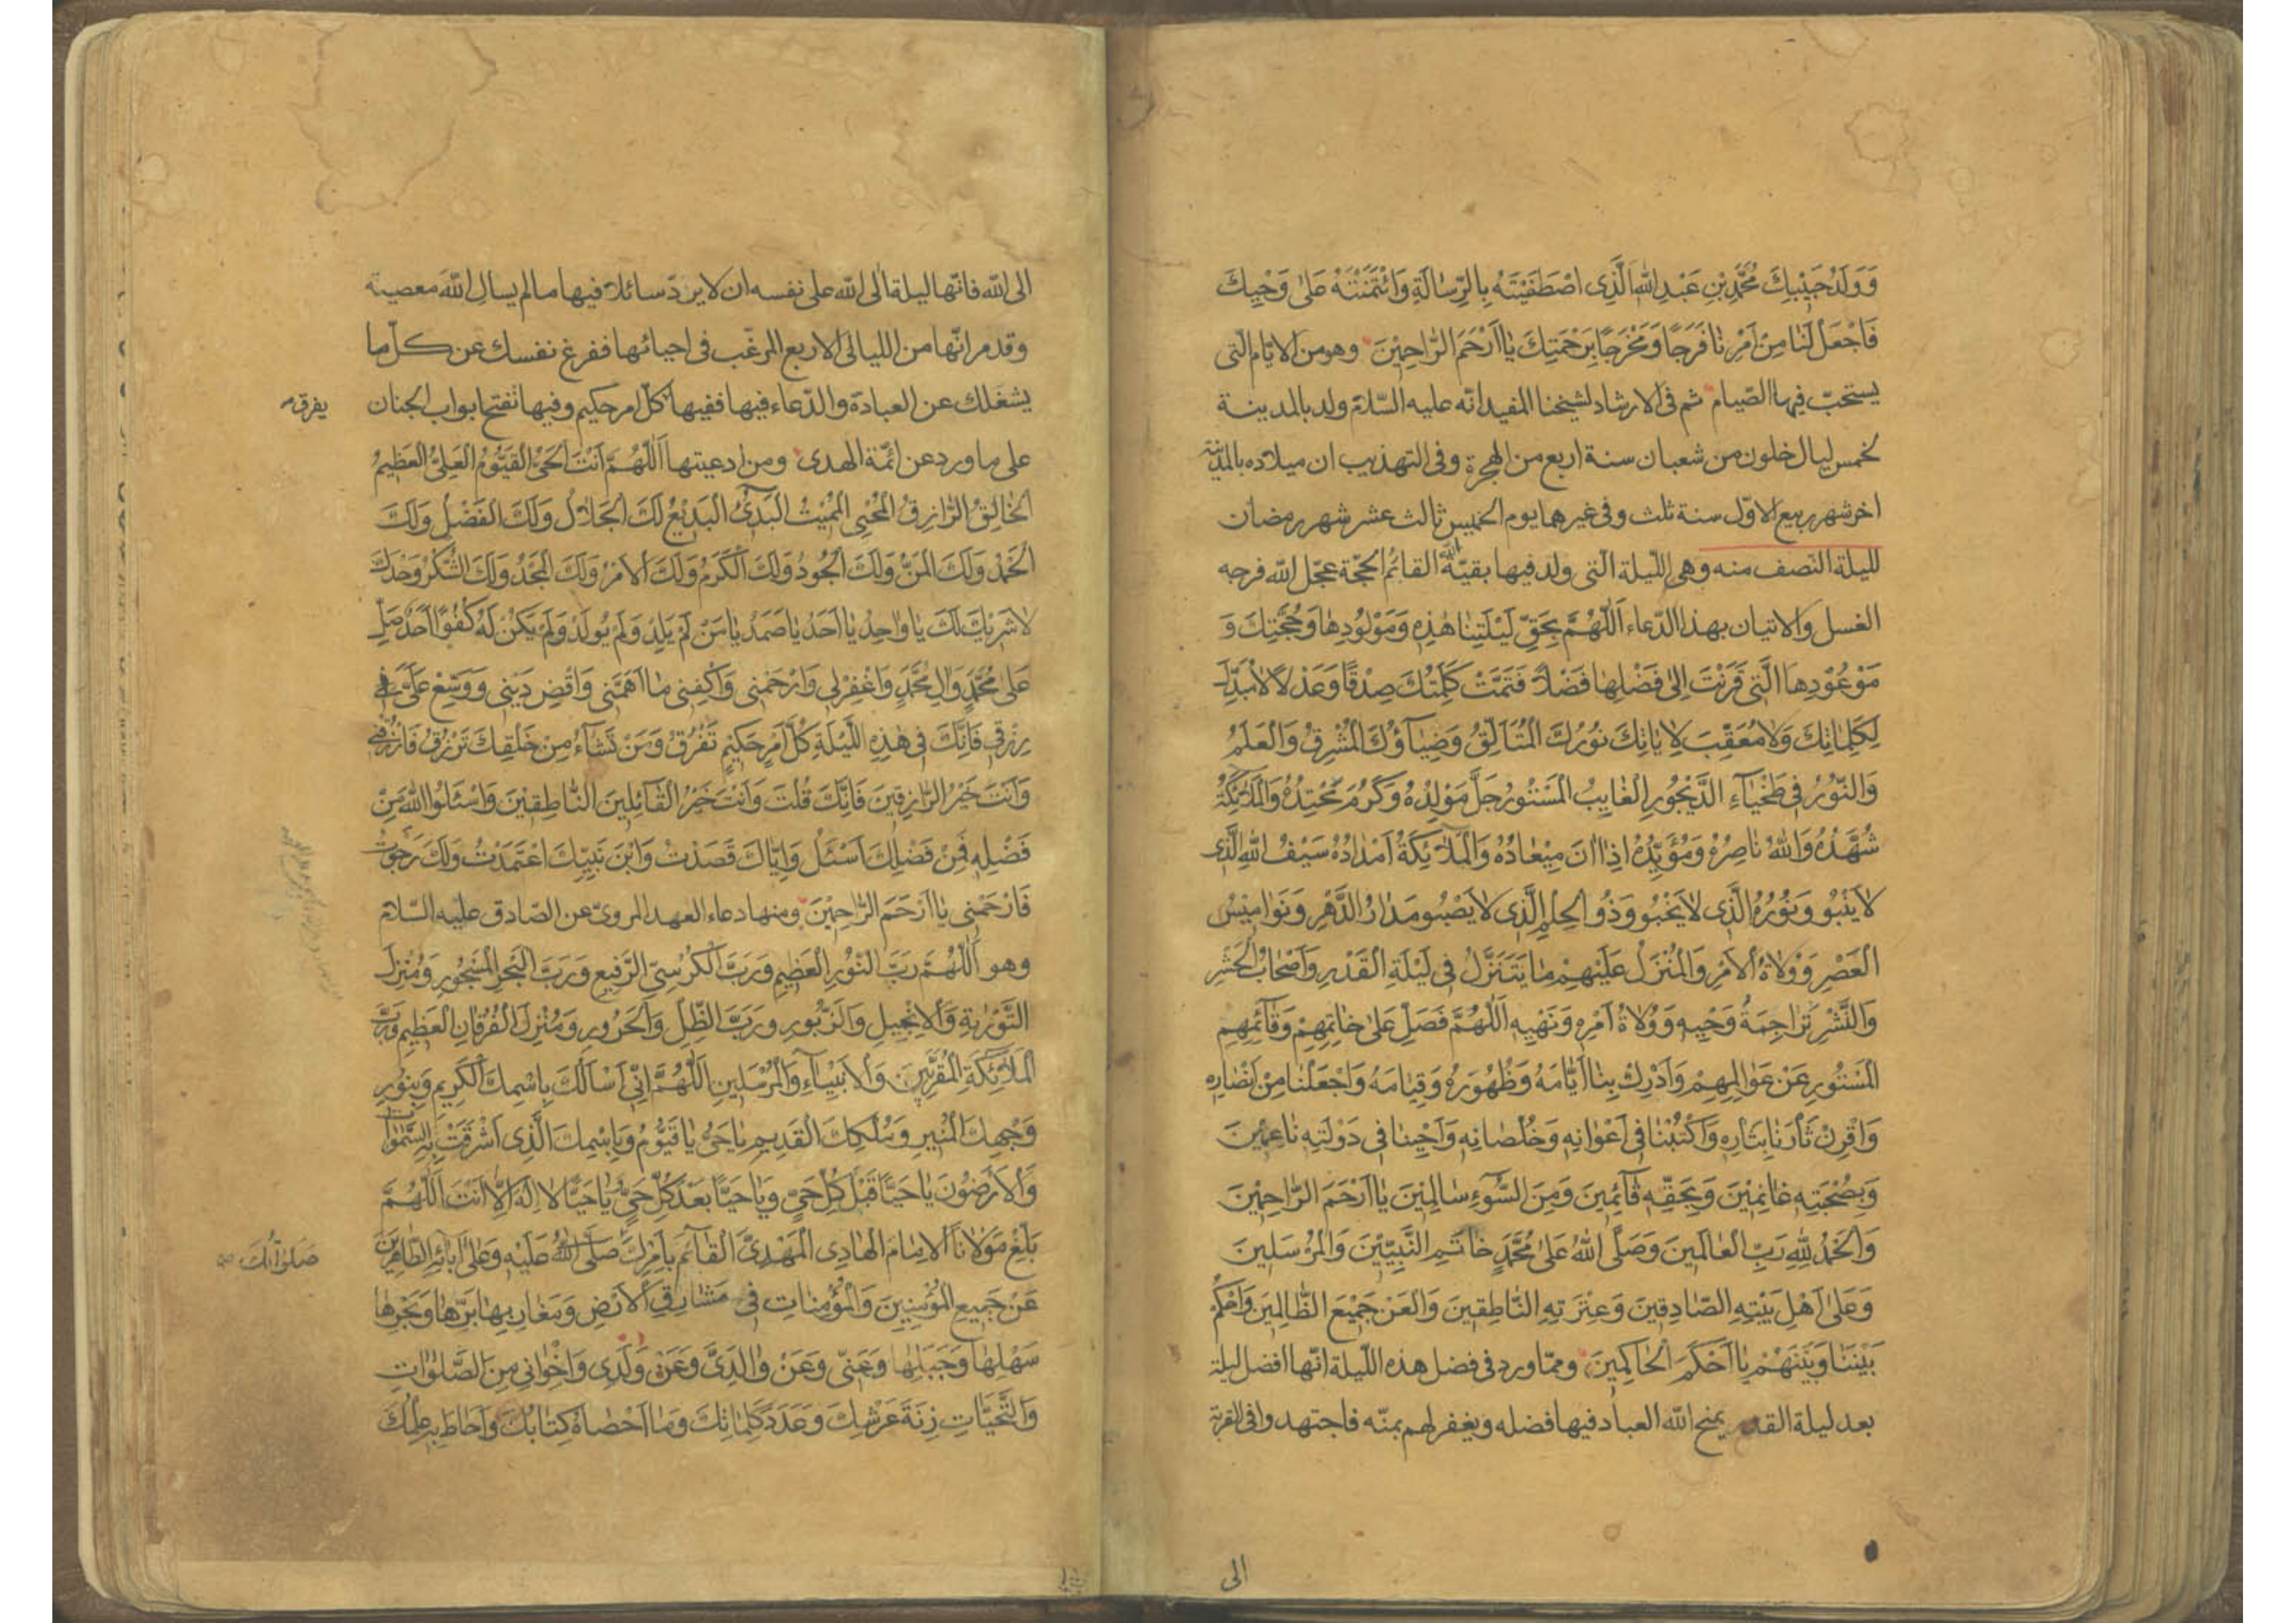 وَوَلَدُ حَبِيْبِكَ مُحَمَّدِ بْنِ عَبْدِ اللّٰهِ الَّذِى اصْطَفَيْتَهُ بِالرِّسٰالَةِ وَائْتَمَنْتَهُ عَلىٰ وَحْيِكَ
فَاجْعَلْ لَنٰا مِنْ اَمْرِنٰا فَرَجًا وَمَخْرَجًا بِرَحْمَتِكَ يٰا اَرْحَمَ الرّٰاحِمِيْنَ وهو من الايّام التى
يستحبّ فيها الصّيام ثم فى الارشاد لشيخنا المفيد انّه عليه السّلام ولد بالمدينة
لخمس ليال خلون من شعبان سنة اربع من الهجرة وفى التهذيب ان ميلاده بالمدينة
اخر شهر ربيع الاوّل سنة ثلث وفى غيرهما يوم الخميس ثالث عشر شهر رمضان
لليلة النّصف منه وهى اللّيلة الّتى ولد فيها بقيّة اللّٰه القائم الحجّة عجّل اللّٰه فرجه
الغسل والاتيان بهذا الدّعاء اَللّٰهُمَّ بِحَقِّ لَيْلَتِنٰا هٰذِهِ وَمَوْلُودِهٰا وَحُجَّتِكَ وَ
مَوْعُوْدِهٰا الَّتِى قَرَنْتَ اِلىٰ فَضْلِهٰا فَضْلًا فَتَمَّتْ كَلِمَتُكَ صِدْقًا وَعَدْلًا لاٰ مُبَدِّلَ
لِكَلِمٰاتِكَ وَلاٰ مُعَقِّبَ لِاٰيٰاتِكَ نُوْرُكَ الْمُتَاَلِّقُ وَضِيٰآؤُكَ الْمُشْرِقُ وَالْعَلَمُ
وَالنّوُْرُ فِى طَخْيٰآءِ الدَّيْجُوْرِ الْغٰايِبُ الْمَسْتُوْرُ جَلَّ مَوْلِدُهُ وَكَرُمَ مَحْتِدُهُ وَالْمَلٰٓئِكَةُ
شُهَّدُهُ وَاللّٰهُ نٰاصِرُهُ وَمُؤَيِّدُهُ اِذٰا اٰنَ مِيْعٰادُهُ وَالْمَلٰٓئِكَةُ اَمْدٰادُهُ سَيْفُ اللّٰهِ الَّذِى
لاٰ يَنْبُوْ وَنُوْرُهُ الَّذِى لاٰ يَخْبُوْ وَذُو الْحِلْمِ الَّذِى لاٰ يَصْبُو مَدٰارُ الدَّهْرِ وَنَوٰامِيْسُ
الْعَصْرِ وَوُلاٰةُ الْاَمْرِ وَالْمُنَزَّلُ عَلَيْهِمْ مٰا يَتَنَزَّلُ فِى لَيْلَةِ الْقَدْرِ وَاَصْحٰابُ الْحَشْرِ
وَالنَّشْرِ تَرٰاجِمَةُ وَحْيِهِ وَوُلاٰةُ اَمْرِهِ وَنَهْيِهِ اَللّٰهُمَّ فَصَلِّ عَلىٰ خٰاتِمِهِمْ وَقٰآئِمِهِمِ
الْمَسْتُوْرِ عَنْ عَوٰالِمِهِمْ وَاَدْرِكْ بِنٰا اَيّٰامَهُ وَظُهُوْرَهُ وَقِيٰامَهُ وَاجْعَلْنٰا مِنْ اَنْصٰارِهِ
وَاقْرِنْ ثٰارَنٰا بِثٰارِهِ وَاكْتُبْنٰا فِى اَعْوٰانِهِ وَخُلَصٰائِهِ وَاَحْيِنٰا فِى دَوْلَتِهِ نٰاعِمِيْنَ
وَبِصُحْبَتِهِ غٰانِمِيْنَ وَبِحَقِّهِ قٰآئِمِينَ وَمِنَ السُّوٓءِ سٰالِمِيْنَ يٰا اَرْحَمَ الرّٰاحِمِيْنَ
وَالْحَمْدُ لِلّٰهِ رَبِّ الْعٰالَمِيْنَ وَصَلَّى اللّٰهُ عَلىٰ مُحَمَّدٍ خٰاتَمِ النَّبِيِّيْنَ وَالْمُرْسَلِينَ
وَعَلىٰ اَهْلِ بَيْتِهِ الصّٰادِقِينَ وَعِتْرَتِهِ النّٰاطِقِينَ وَالْعَنْ جَمِيْعَ الظّٰالِمِينَ وَاحْكُمْ
بَيْنَنٰا وَبَيْنَهُمْ يٰا اَحْكَمَ الْحٰاكِمِينَ وممّا ورد فى فضل هذه اللّيلة انّها افضل ليلة
بعد ليلة القدر يمنح اللّٰه العباد فيها فضله ويغفر لهم بمنّه فاجتهدوا فى القربة
الى
الى اللّٰه فانّها ليلة اٰلى اللّٰه على نفسه ان لا يردّ سائلا فيها ما لم يسال اللّٰه معصية
وقد مر انّها من الليالى الاربع المرغّب فى احيائها ففرغ نفسك عن كلّ ما
يشغلك عن العبادة والدّعاء فيها ففيها كلّ امر حكيم وفيها تفتح ابواب الجنان
يفرق
على ما ورد عن ائمّة الهدى ومن ادعيتها اَللّٰهُمَّ اَنْتَ الْحَىُّ الْقَيُّومُ الْعَلِىُّ الْعَظِيمُ
الْخٰالِقُ الرّٰازِقُ الْمُحْيِى الْمُمِيْتُ الْبَدِىٓءُ الْبَدِيْعُ لَكَ الْجَلاٰلُ وَلَكَ الْفَضْلُ وَلَكَ
الْحَمْدُ وَلَكَ الْمَنُّ وَلَكَ الْجُوْدُ وَلَكَ الْكَرَمُ وَلَكَ الْاَمْرُ وَلَكَ الْمَجْدُ وَلَكَ الشُّكْرُ وَحْدَكَ
لاٰ شَرِيْكَ لَكَ يٰا وٰاحِدُ يٰا اَحَدُ يٰا صَمَدُ يٰا مَنْ لَمْ يَلِدْ وَلَمْ يُولَدْ وَلَمْ يَكُنْ لَهُ كُفُوًا اَحَدٌ صَلِّ
عَلىٰ مُحَمَّدٍ وَاٰلِ مُحَمَّدٍ وَاغْفِرْ لِى وَارْحَمْنِى وَاكْفِنِى مٰا اَهَمَّنِى وَاقْضِ دَيْنِى وَوَسِّعْ عَلَىَّ فِى
رِزْقِى فَاِنَّكَ فِى هٰذِهِ اللَّيْلَةِ كُلَّ اَمْرٍ حَكِيْمٍ تَفْرُقُ وَمَنْ تَشٰآءُ مِنْ خَلْقِكَ تَرْزُقُ فَارْزُقْنِى
وَاَنْتَ خَيْرُ الرّٰازِقِينَ فَاِنَّكَ قُلْتَ وَاَنْتَ خَيْرُ الْقٰآئِلِينَ النّٰاطِقِيْنَ وَاسْئَلُوا اللّٰهَ مِنْ
فَضْلِهِ فَمِنْ فَضْلِكَ اَسْئَلُ وَاِيّٰاكَ قَصَدْتُ وَابْنَ نَبِيِّكَ اعْتَمَدْتُ وَلَكَ رَجَوْتُ
فَارْحَمْنِى يٰا اَرْحَمَ الرّٰاحِمِيْنَ ومنها دعاء العهد المروىّ عن الصّادق عليه السّلام
وهو اَللّٰهُمَّ رَبَّ النُّوْرِ الْعَظِيمِ وَرَبَّ الْكُرْسِىِّ الرَّفِيعِ وَرَبَّ الْبَحْرِ الْمَسْجُورِ وَمُنْزِلَ
التَّوْرٰيةِ وَالْاِنْجِيلِ وَالزَّبُورِ وَرَبَّ الظِّلِّ وَالْحَرُورِ وَمُنْزِلَ الْفُرْقٰانِ الْعَظِيمِ وَرَبَّ
الْمَلٰٓئِكَةِ الْمُقَرَّبِينَ وَالْاَنْبِيٰآءِ وَالْمُرْسَلِينَ اَللّٰهُمَّ اِنِّى اَسْاَلُكَ بِاسْمِكَ الْكَرِيمِ وَبِنُورِ
وَجْهِكَ الْمُنِيرِ وَمُلْكِكَ الْقَدِيمِ يٰا حَىُّ يٰا قَيُّومُ وَبِاسْمِكَ الَّذِى اَشْرَقَتْ بِهِ السَّمٰوٰاتُ
وَالْاَرَضُونَ يٰا حَيًّا قَبْلَ كُلِّ حَىٍّ وَيٰا حَيًّا بَعْدَ كُلِّ حَىٍّ يٰا حَيًّا لاٰ اِلٰهَ اِلاّٰ اَنْتَ اَللّٰهُمَّ
بَلِّغْ مَوْلاٰنَا الْاِمٰامَ الْهٰادِى الْمَهْدِىَّ الْقٰآئِمَ بِاَمْرِكَ صَلَّى اللّٰهُ عَلَيْهِ وَعَلىٰ اٰبٰائِهِ الطّٰاهِرِينَ
صَلَوٰاتُكَ
عَنْ جَمِيعِ الْمُؤْمِنِينَ وَالْمُؤْمِنٰاتِ فِى مَشٰارِقِ الْاَرْضِ وَمَغٰارِبِهٰا بَرِّهٰا وَبَحْرِهٰا
سَهْلِهٰا وَجَبَلِهٰا وَعَنِّى وَعَنْ وٰالِدَىَّ وَعَنْ وَلَدِى وَاِخْوٰانِى مِنَ الصَّلَوٰاتِ
وَالتَّحِيّٰاتِ زِنَةَ عَرْشِكَ وَعَدَدَ كَلِمٰاتِكَ وَمٰا اَحْصٰاهُ كِتٰابُكَ وَاَحٰاطَ بِهِ عِلْمُكَ